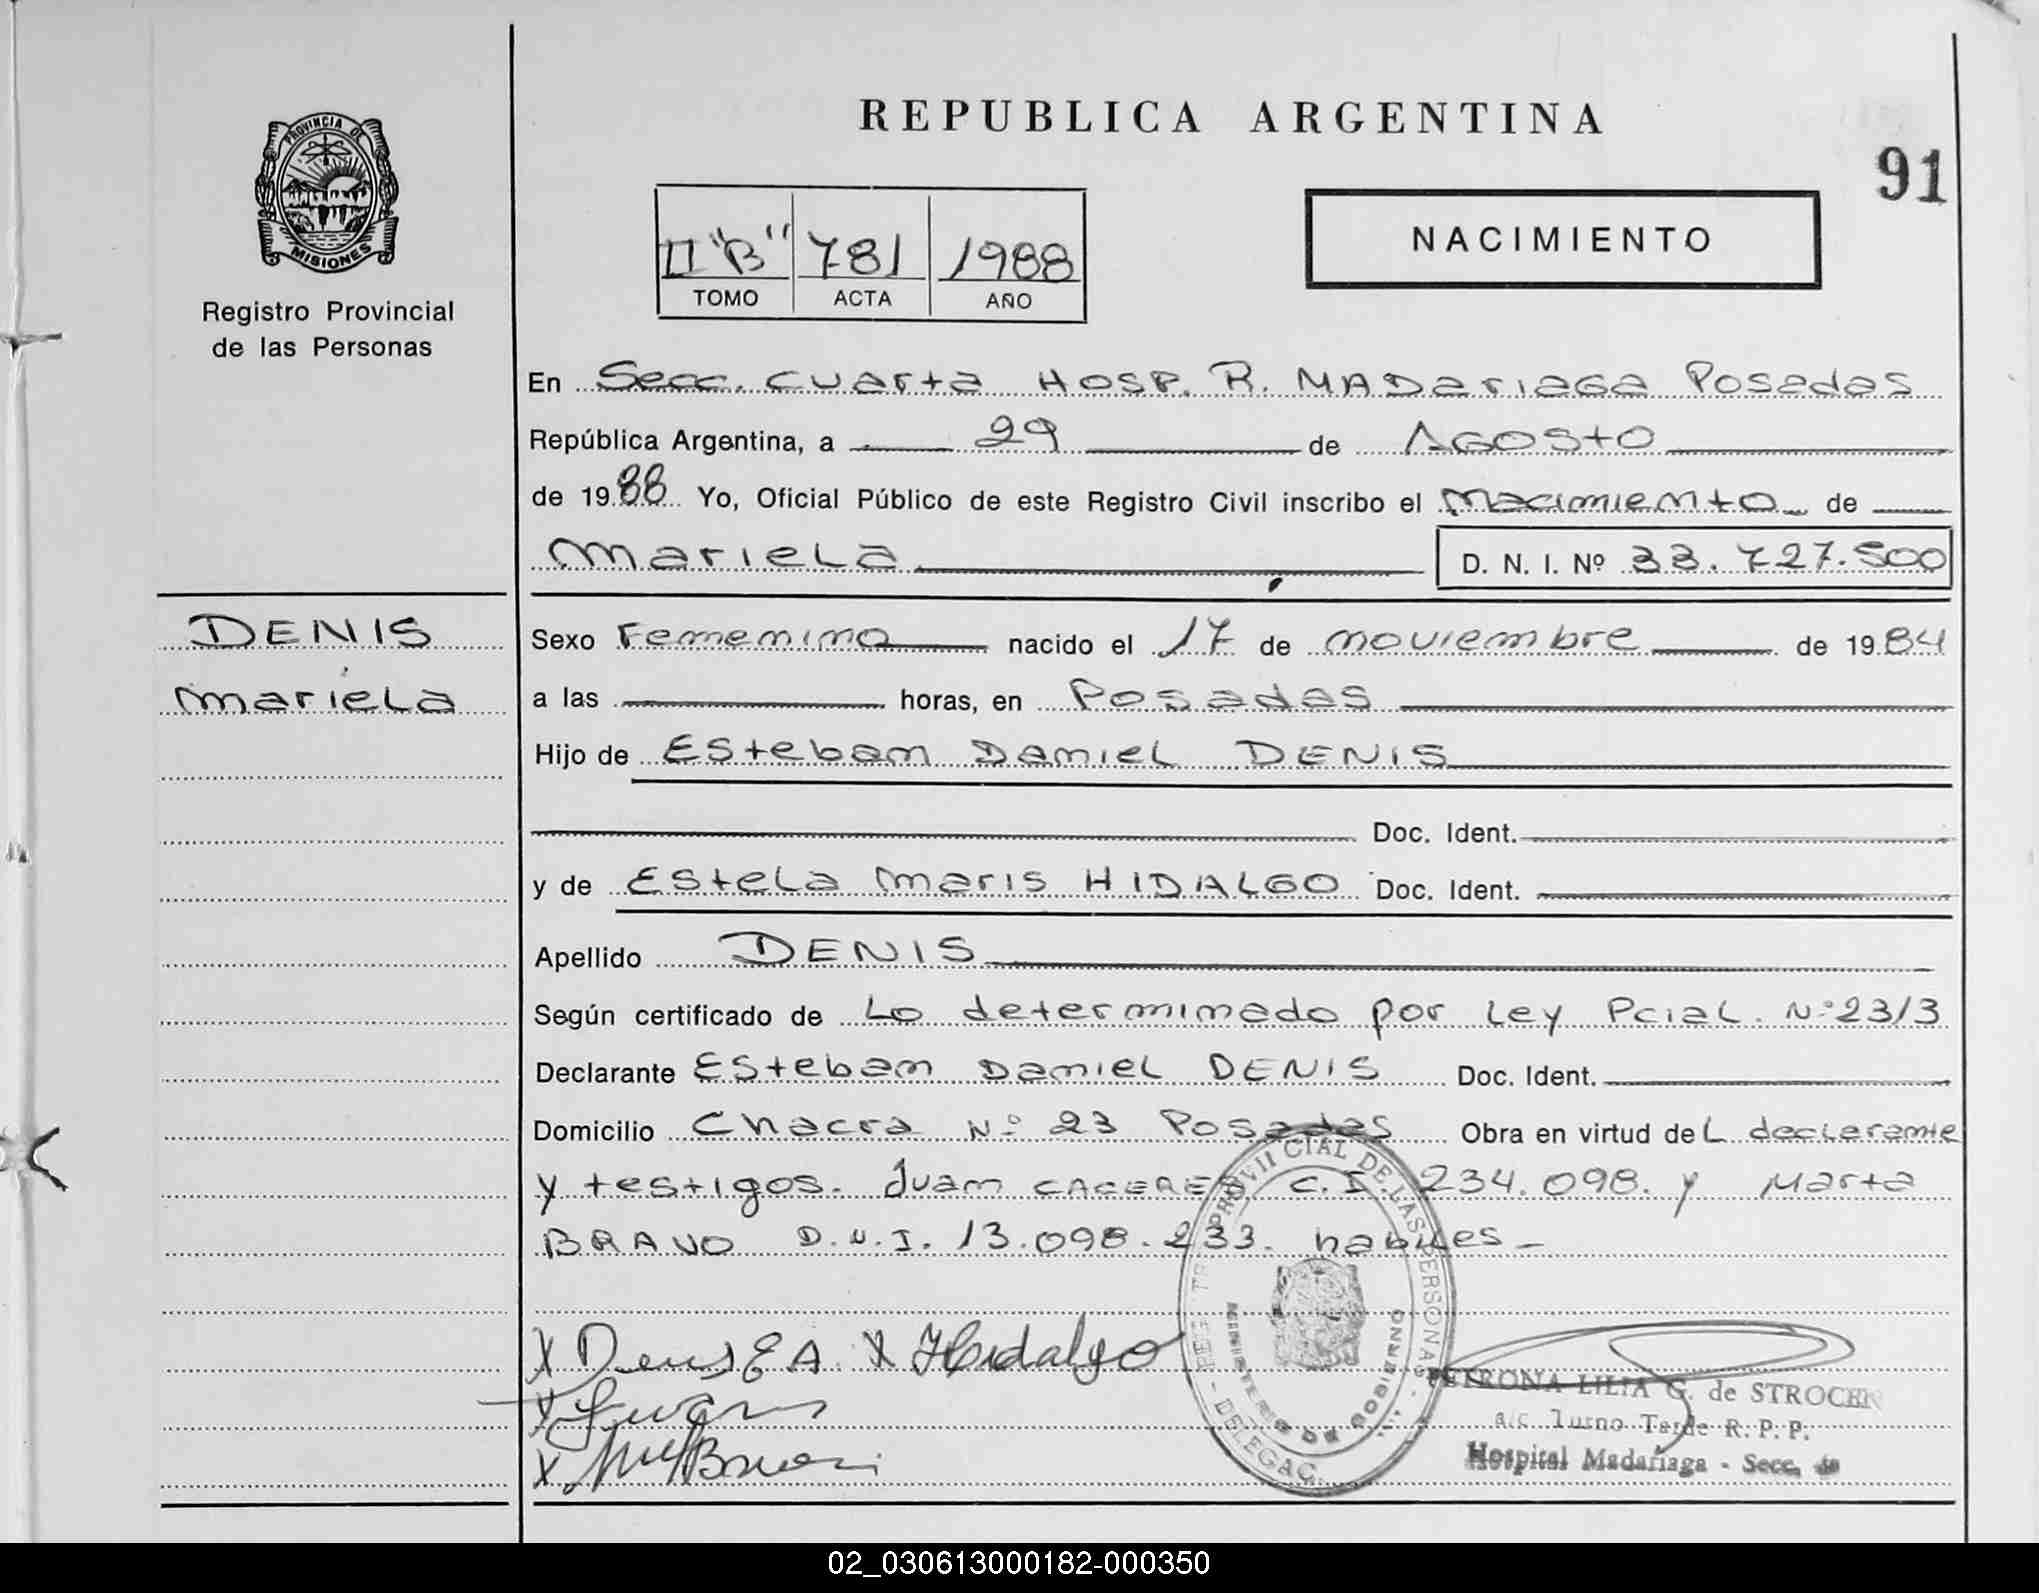 REPUBLICA ARGENTINA
91
PROVINCIA DE
MISIONES
Registro Provincial
de las Personas
II "B" 781 1988
TOMO ACTA AÑO
NACIMIENTO
En Secc. Cuarta Hosp. R. MADariaga Posadas
República Argentina, a 29 de Agosto
de 1988 Yo, Oficial Público de este Registro Civil inscribo el nacimiento de
Mariela D. N. I. Nº 33.727.500
DENIS
Mariela
Sexo Femenino nacido el 17 de noviembre de 1984
a las horas, en Posadas
Hijo de Esteban Daniel DENIS
Doc. Ident.
y de Estela Maris HIDALGO Doc. Ident.
Apellido DENIS
Según certificado de Lo determinado por Ley Pcial. Nº 2313
Declarante Esteban Daniel DENIS Doc. Ident.
Domicilio Chacra Nº 23 Posadas Obra en virtud del declarante
y testigos. Juan CACERES C.I. 234.098. y Marta
BRAVO D.N.I. 13.098.233. habiles
X Denis E A. X Hidalgo
X
X
PROVINCIAL DE LAS PERSONAS - DELEGAC.
MINISTERIO DE GOBIERNO
PETRONA LILIA G. de STROCEN
a/c Turno Tarde R. P. P.
Hospital Madariaga - Secc. 4a
02_030613000182-000350